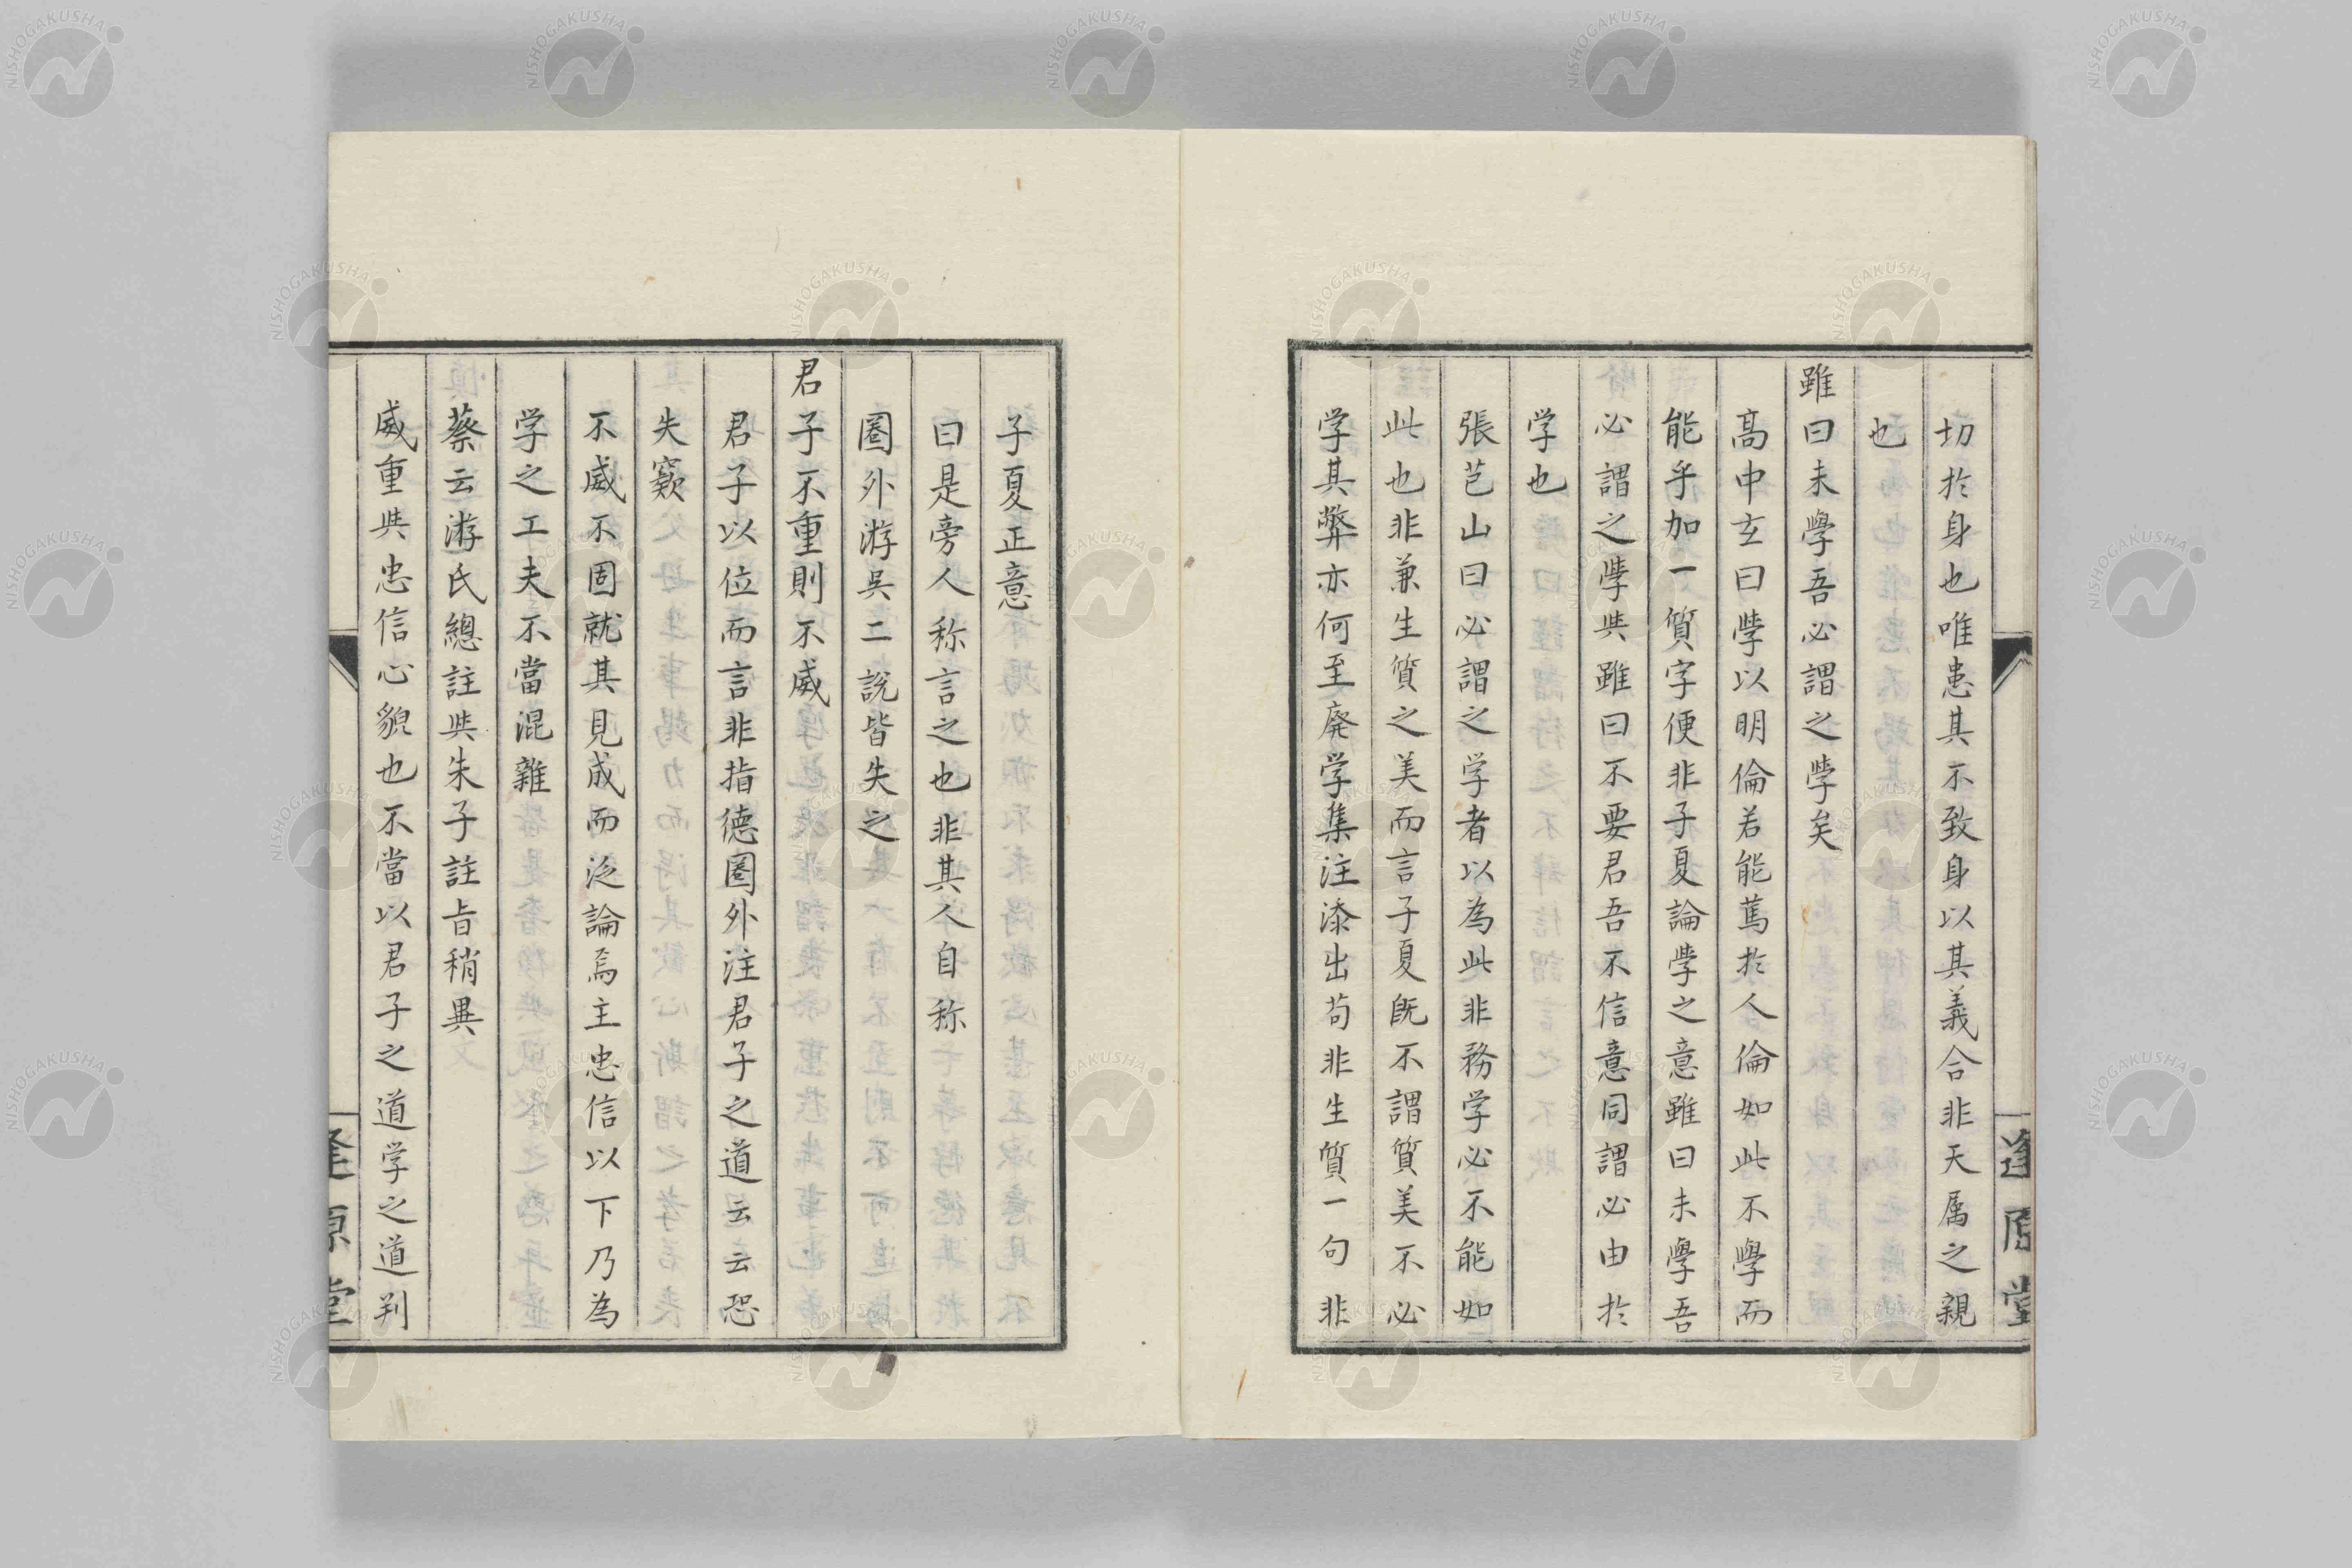 切於身也唯患其不致身以其義合非天属之親
也
雖曰未學吾必謂之學矣
高中玄曰學以明倫若能篤於人倫如此不學而
能乎加一質字便非子夏論學之意雖曰未學吾
必謂之學與雖曰不要君吾不信意同謂必由於
学也
張芑山曰必謂之学者以為此非務学必不能如
此也非兼生質之美而言子夏既不謂質美不必
学其弊亦何至廃学集注添出苟非生質一句非
子夏正意
曰是旁人称言之也非其人自称
圏外游吳二説皆失之
君子不重則不威
君子以位而言非指德圏外注君子之道云云恐
失窾
不威不固就其見成而泛論焉主忠信以下乃為
学之工夫不當混雜
蔡云游氏總註與朱子註旨稍異
威重與忠信心貌也不當以君子之道学之道判
逢原堂
逢原堂
NISHOGAKUSHA